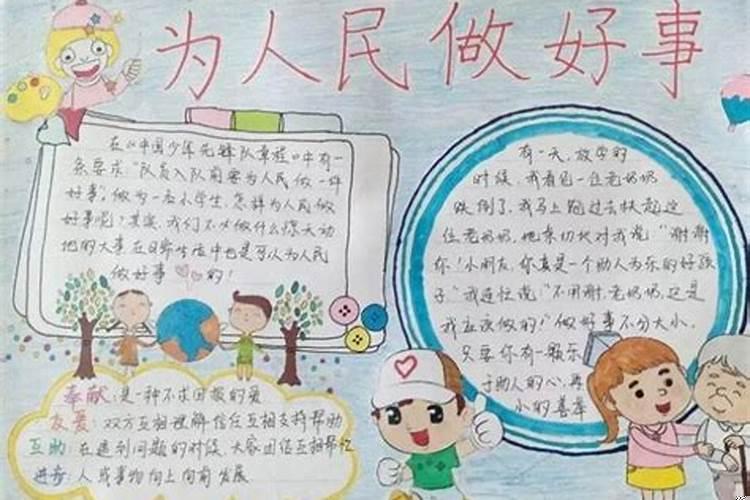 为人民做好事
在《中国少年先锋队章程》中有一
条要求:"队员入队前要为人民做一件
好事"。做为一名小学生,怎样为人民做
好事呢?其实,我们不必做什么惊天动
地的大事在日常生活中也是可以为人民
做好事的!
有一天,放学的
时候,我看见一位老奶奶
跌倒了,我马上跑过去扶起这
位老奶奶,她亲切地对我说:"谢谢
你!小朋友,你真是一个助人为乐的好孩
子"我连忙说:"不用谢,老奶奶,这是
我应该做的!"做好事不分大小,
只要你有一颗乐
于助人的心,再
小的善举
奉献:是一种不求回报的爱
友爱:双方互相理解信任互相支持帮助
互助:在遇到问题的时候,大家团结互相帮忙
进奇:人或事物向上向前发展